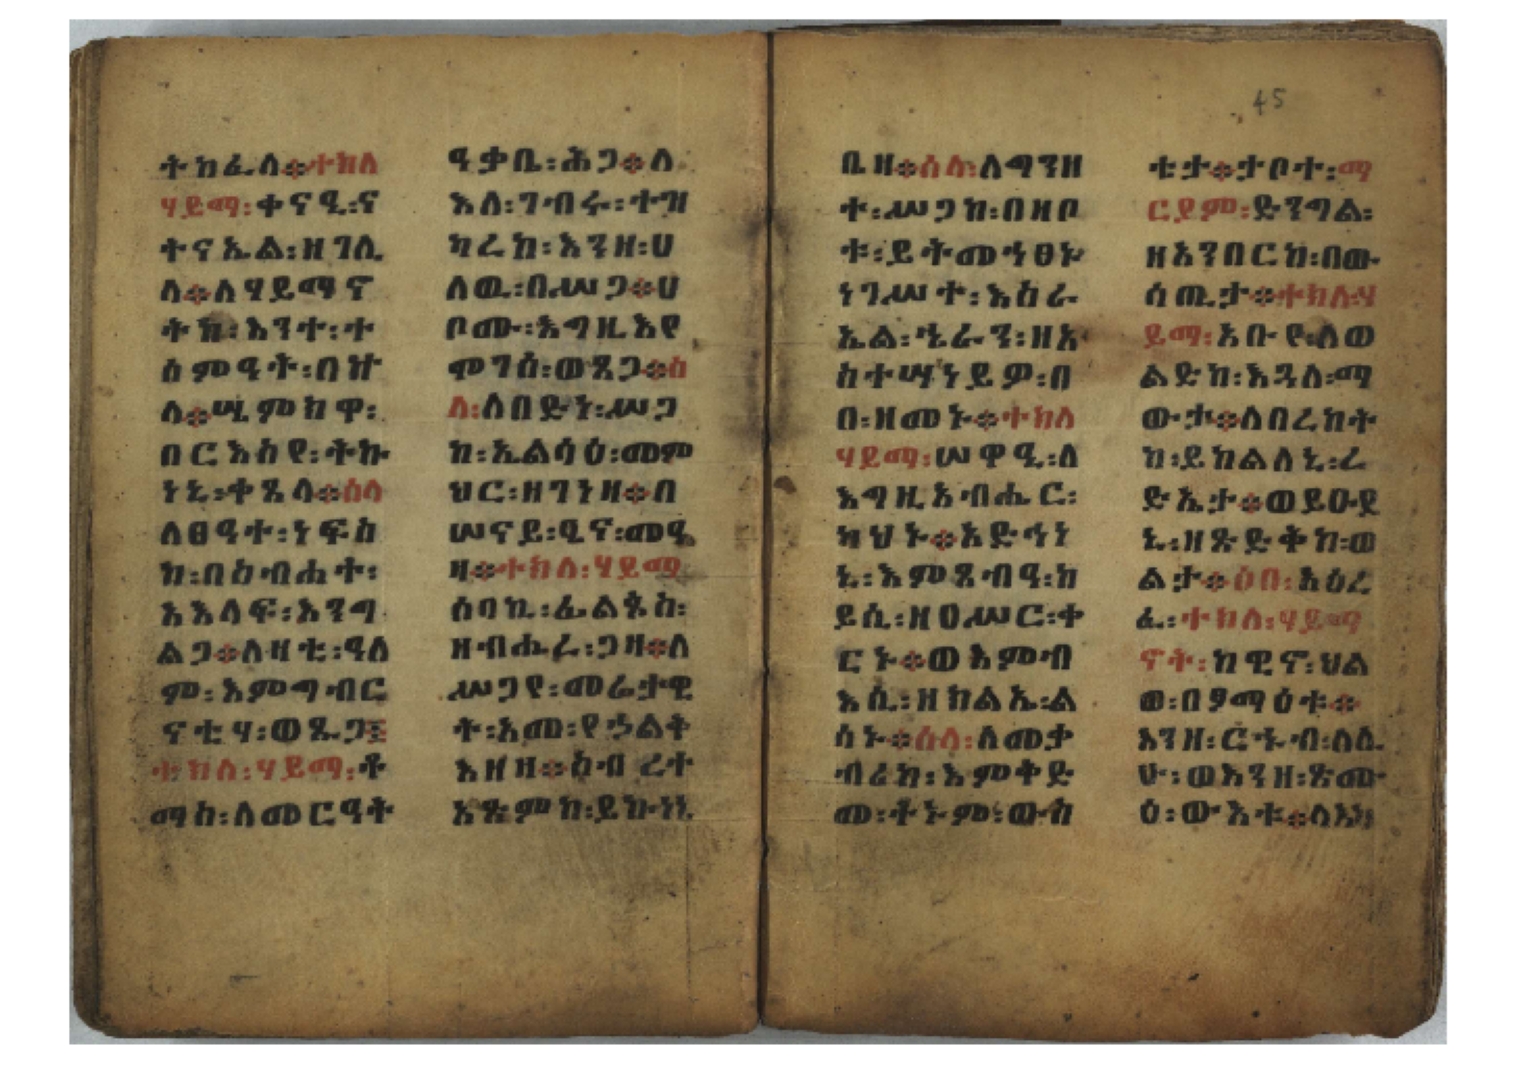 ትከፈለ፨ተክለ
ሃይማ፡ቀናዒ፡ና
ትናኤል፡ዘገሊ
ላ፨ለሃይማኖ
ትከ፡እንተ፡ተ
ስምዓት፡በኵ
ለ፨ሢምከዋ፡
በርእስየ፡ትኩ
ነኒ፡ቀጸላ፨ሰላ
ለፀዓተ፡ነፍስ
ከ፡በስብሐተ፡
አእላፍ፡እንግ
ልጋ፨ለዛቲ፡ዓለ
ም፡እምግብር
ናቲሃ፡ወጹጋ፤
ተክለ፡ሃይማ፡ቶ
ማስ፡ለመርዓት
ዓቃቢ፡ሕጋ፨ለ
እለ፡ገብሩ፡ተዝ
ካረከ፡እንዘ፡ሀ
ለዉ፡በሥጋ፨ሀ
ቦሙ፡እግዚእየ
ሞገሰ፡ወጸጋ፨ሰ
ላ፡ለበድነ፡ሥጋ
ከ፡ኤልሳዕ፡መም
ህር፡ዘገነዘ፨በ
ሠናይ፡ዒና፡መዓ
ዛ፨ተክለ፡ሃይማ
ሰባኪ፡ፊልጶስ፡
ዘብሔረ፡ጋዛ፨ለ
ሥጋየ፡መሬታዊ
ት፡አመ፡የኃልቅ
አዘዛ፨ስብ ረተ
አጽምከ፡ይኩነኒ
45
ቤዛ፨ሰላ፡ለማንዘ
ተ፡ሥጋከ፡በዘቦ
ቱ፡ይትመኀፀኑ
ነገሥተ፡እስራ
ኤል፡ኄራን፡ዘአ
ስተሣነይዎ፡በ
በ፡ዘመኑ፨ተክለ
ሃይማ፡ሠዋዒ፡ለ
እግዚአብሔር፡
ካህኑ፨አድኅነ
ኒ፡እምጸብዓ፡ከ
ይሲ፡ዘዐሥር፡ቀ
ርኑ፨ወእምብ
እሲ፡ዘክልኤ፡ል
ሳኑ፨ሰላ፡ለመቃ
ብሪከ፡እምቅድ
መ፡ቶኑም፡ውስ
ቴታ፨ታቦተ፡ማ
ርያም፡ድንግል፡
ዘአንበርከ፡በው
ሳጢታ፨ተክለ፡ሃ
ይማ፡አቡየ፡ለወ
ልድከ፡እጓለ፡ማ
ውታ፨ለበረከት
ከ፡ይከልለኒ፡ረ
ድኤታ፨ወይዑደ
ኒ፡ዘጽድቅከ፡ወ
ልታ፨ዕበ፡አዕረ
ፈ፡ተክለ፡ሃይማ
ኖት፡ከዊኖ፡ህል
ወ፡በፃማዕቱ፨
እንዘ፡ርኁብ፡ለሊ
ሁ፡ወእንዘ፡ጽሙ
ዕ፡ውእቱ፨